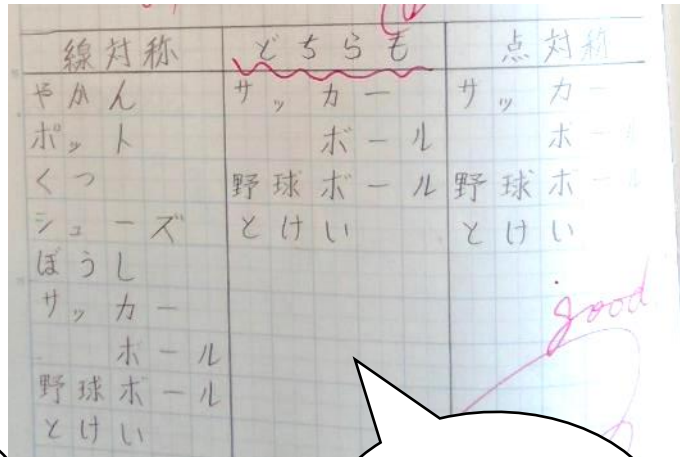 線対称 どちらも 点対称
やかん サッカー サッカー
ポット ボール ボール
くつ 野球ボール 野球ボール
シューズ とけい とけい
ぼうし
サッカー
ボール
野球ボール
とけい
good